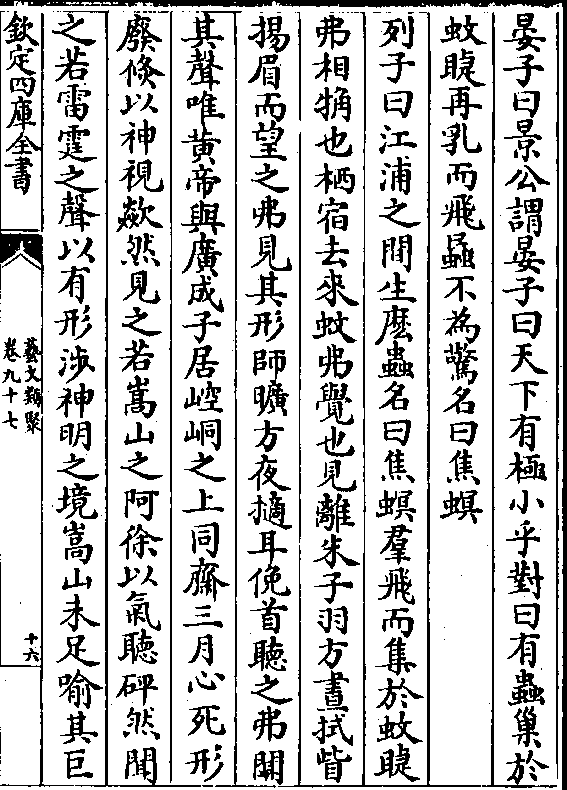 晏子曰景公謂晏子曰天下有極小乎對曰有蟲巢於
蚊睫再乳而飛蟁不為驚名曰焦螟
列子曰江浦之間生麽蟲名曰焦螟羣飛而集於蚊睫
弗相觕也栖宿去來蚊弗覺也見離朱子羽方晝拭眥
揚眉而望之弗見其形師曠方夜擿耳俛首聽之弗聞
其聲唯黄帝與廣成子居崆峒之上同齋三月心死形
廢倏以神視歘然見之若嵩山之阿徐以氣聽砰然聞
之若雷霆之聲以有形涉神明之境嵩山未足喻其巨
欽定四庫全書
藝文類聚
卷九十七
十六